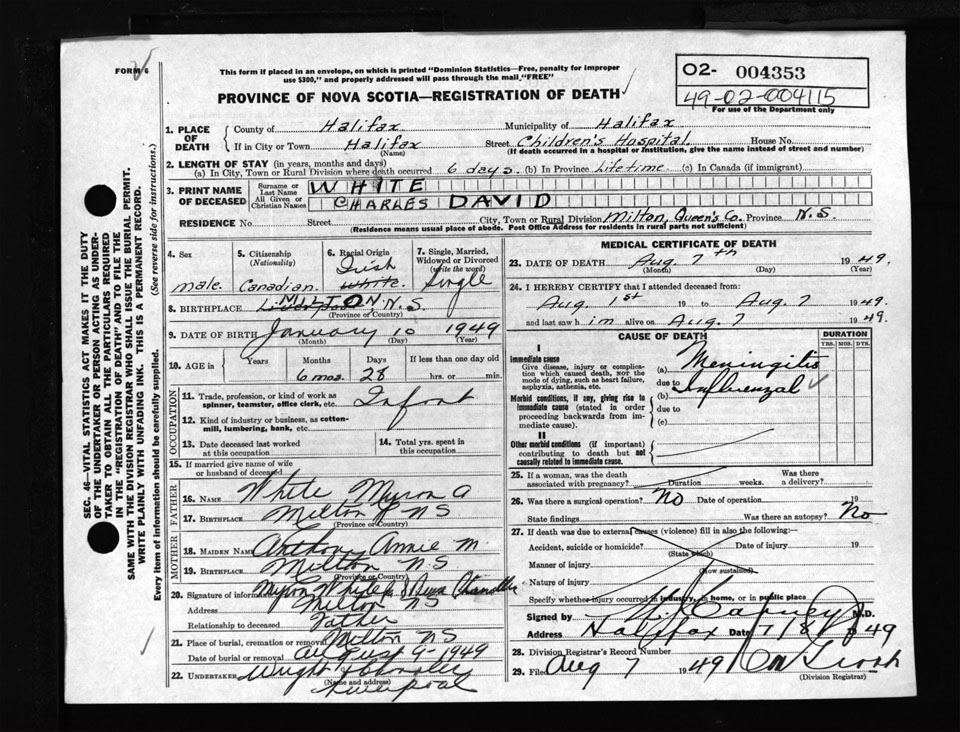 FORM 6
This form if placed in an envelope, on which is printed "Dominion Statistics—Free, penalty for improper
use $300," and properly addressed will pass through the mail "FREE"
PROVINCE OF NOVA SCOTIA—REGISTRATION OF DEATH
02- 004353
49-02-004115
For use of the Department only
SEC. 46—VITAL STATISTICS ACT MAKES IT THE DUTY
OF THE UNDERTAKER OR PERSON ACTING AS UNDER-
TAKER TO OBTAIN ALL THE PARTICULARS REQUIRED
IN THE "REGISTRATION OF DEATH" AND TO FILE THE
SAME WITH THE DIVISION REGISTRAR WHO SHALL ISSUE THE BURIAL PERMIT.
WRITE PLAINLY WITH UNFADING INK. THIS IS A PERMANENT RECORD.
Every item of information should be carefully supplied. (See reverse side for instructions.)
1. PLACE OF DEATH County of Halifax Municipality of Halifax
If in City or Town Halifax Street Children's Hospital House No.
(Name) (If death occurred in a hospital or institution, give the name instead of street and number)
2. LENGTH OF STAY (in years, months and days)
(a) In City, Town or Rural Division where death occurred 6 days. (b) In Province Lifetime (c) In Canada (if immigrant)
3. PRINT NAME OF DECEASED Surname or Last Name WHITE
All Given or Christian Names CHARLES DAVID
RESIDENCE No. Street City, Town or Rural Division Milton, Queen's Co. Province N.S.
(Residence means usual place of abode. Post Office Address for residents in rural parts not sufficient)
4. Sex male.
5. Citizenship (Nationality) Canadian.
6. Racial Origin Irish White.
7. Single, Married, Widowed or Divorced (write the word) Single
8. BIRTHPLACE Liverpool MILTON N.S.
(Province or Country)
9. DATE OF BIRTH January 10 1949
(Month) (Day) (Year)
10. AGE in Years Months Days If less than one day old
6 mos. 28 hrs. or min.
OCCUPATION
11. Trade, profession, or kind of work as spinner, teamster, office clerk, etc. Infant
12. Kind of industry or business, as cotton-mill, lumbering, bank, etc.
13. Date deceased last worked at this occupation
14. Total yrs. spent in this occupation
15. If married give name of wife or husband of deceased
FATHER
16. Name White Myron A
17. Birthplace Milton NS
(Province or Country)
MOTHER
18. Maiden Name Anthony Annie M.
19. Birthplace Milton NS
(Province or Country)
20. Signature of informant Myron White Chandler
Address Milton NS
Relationship to deceased Father
21. Place of burial, cremation or removal Milton NS
Date of burial or removal August 9- 1949
22. UNDERTAKER Wright & Chandler
(Name and address) Liverpool
MEDICAL CERTIFICATE OF DEATH
23. DATE OF DEATH Aug. 7th 1949.
(Month) (Day) (Year)
24. I HEREBY CERTIFY that I attended deceased from:
Aug. 1st 19 to Aug. 7 1949.
and last saw him alive on Aug. 7 1949.
CAUSE OF DEATH
DURATION
YRS. MOS. DYS.
I
Immediate cause
Give disease, injury or complication which caused death, not the mode of dying, such as heart failure, asphyxia, asthenia, etc.
(a) Meningitis
due to
(b) Influenzal
Morbid conditions, if any, giving rise to immediate cause (stated in order proceeding backwards from immediate cause).
due to
(c)
II
Other morbid conditions (if important) contributing to death but not causally related to immediate cause.
25. If a woman, was the death associated with pregnancy? Duration weeks. Was there a delivery?
26. Was there a surgical operation? No Date of operation 19
State findings Was there an autopsy? No
27. If death was due to external causes (violence) fill in also the following:—
Accident, suicide or homicide? Date of injury 19
(State which)
Manner of injury
(How sustained)
Nature of injury
Specify whether injury occurred in industry, in home, or in public place
Signed by M.D.
Address Halifax Date 7/8/49
28. Division Registrar's Record Number
29. Filed Aug 7 1949
(Division Registrar)